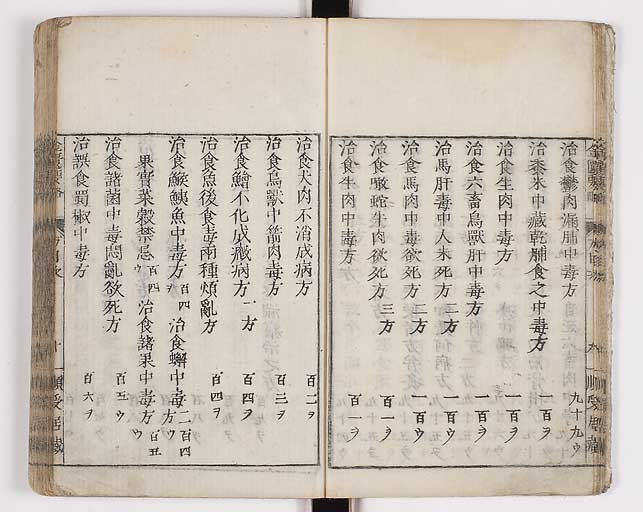 治食鬱肉漏脯中毒方 九十九ウ
治黍米中藏乾脯食之中毒方 一百ヲ
治食生肉中毒方 一百ヲ
治食六畜鳥獸肝中毒方 一百ヲ
治馬肝毒中人未死方 二方 一百ウ
治食馬肉中毒欲死方 二方 一百ウ
治食噉蛇牛肉欲死方 三方 百一ヲ
治食牛肉中毒方 百一ウ
治食犬肉不消成病方 百二ヲ
治食鳥獸中箭肉毒方 百三ヲ
治食鱠不化成癥病方 一方 百四ヲ
治食魚後食毒兩種煩亂方 百四ヲ
治食鯸鮧魚中毒方 百四ウ 治食蟹中毒方 二 百四ウ
果實菜穀禁忌 百四ウ 治食諸果中毒方 百五ウ
治食諸菌中毒悶亂欲死方 百五ウ
治誤食蜀椒中毒方 百六ヲ
十